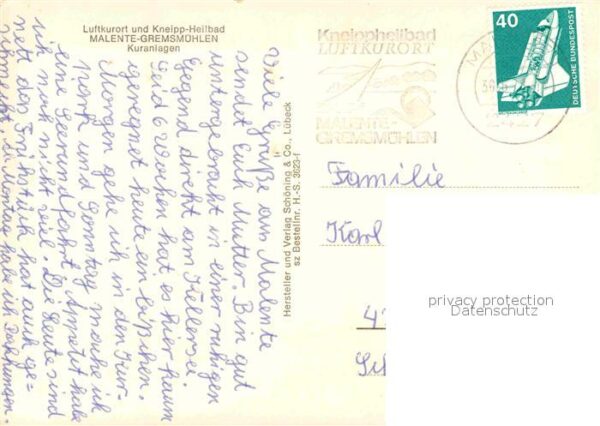 Luftkurort und Kneipp-Heilbad
MALENTE-GREMSMÜHLEN
Kuranlagen
Viele Grüße aus Malente
sendet Euch Mutter. Bin gut
untergebracht in einer ruhigen
Gegend direkt am Kellersee.
Seid 6 Wochen hat es hier kaum
geregnet heute ein bißchen.
Morgen gehe ich in den Kur-
Park und Sonntag mache ich
eine Seerundfahrt. Appetit habe
ich noch nicht viel. Die Leute sind
nett das Frühstück hat auch ge-
schmeckt. Montag habe ich Packungen.
Hersteller und Verlag Schöning & Co., Lübeck
sz Bestellnr. H.-S. 3023-f
Kneippheilbad
LUFTKURORT
MALENTE-
GREMSMÜHLEN
MA
2427
40
DEUTSCHE BUNDESPOST
Familie
Karl
privacy protection
Datenschutz